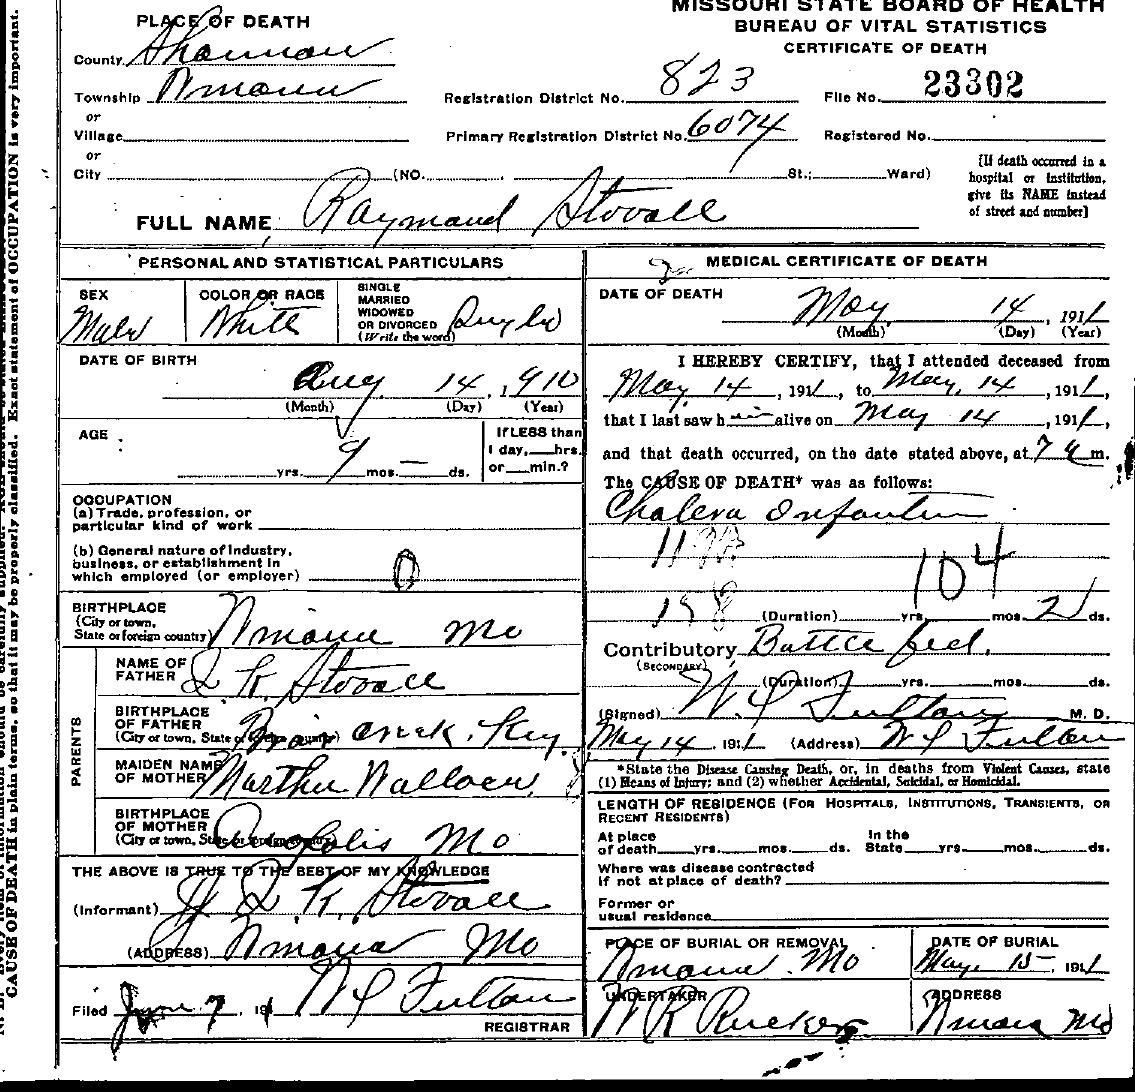 MISSOURI STATE BOARD OF HEALTH
BUREAU OF VITAL STATISTICS
CERTIFICATE OF DEATH
PLACE OF DEATH
County Shannon
Township
or
Village
or
City (NO. St.; Ward)
Registration District No. 823
File No. 23302
Primary Registration District No. 6074
Registered No.
[If death occurred in a
hospital or institution,
give its NAME instead
of street and number]
FULL NAME Raymond Stovall
PERSONAL AND STATISTICAL PARTICULARS
SEX
Male
COLOR OR RACE
White
SINGLE
MARRIED
WIDOWED
OR DIVORCED
(Write the word)
Single
DATE OF BIRTH
Aug 14, 1910
(Month) (Day) (Year)
AGE
yrs. 9 mos. — ds.
If LESS than
1 day, hrs.
or min.?
OCCUPATION
(a) Trade, profession, or
particular kind of work
(b) General nature of industry,
business, or establishment in
which employed (or employer) 0
BIRTHPLACE
(City or town,
State or foreign country) Mo
PARENTS
NAME OF
FATHER K. Stovall
BIRTHPLACE
OF FATHER
(City or town, State or foreign country) Creek. Key
MAIDEN NAME
OF MOTHER Martha
BIRTHPLACE
OF MOTHER
(City or town, State or foreign country) Mo
THE ABOVE IS TRUE TO THE BEST OF MY KNOWLEDGE
(Informant) K. Stovall
(ADDRESS) Mo
Filed June 7, 191 Fulton
REGISTRAR
MEDICAL CERTIFICATE OF DEATH
DATE OF DEATH
May 14, 1911
(Month) (Day) (Year)
I HEREBY CERTIFY, that I attended deceased from
May, 14, 1911, to May, 14, 1911,
that I last saw him alive on May 14, 1911,
and that death occurred, on the date stated above, at 7 a m.
The CAUSE OF DEATH* was as follows:
Cholera Infantum
104
(Duration) yrs. mos. 2 ds.
Contributory Bottle fed.
(SECONDARY)
(Duration) yrs. mos. ds.
(Signed) Fulton M. D.
May 14, 1911 (Address) Fulton
*State the Disease Causing Death, or, in deaths from Violent Causes, state
(1) Means of Injury; and (2) whether Accidental, Suicidal, or Homicidal.
LENGTH OF RESIDENCE (For Hospitals, Institutions, Transients, or
Recent Residents)
At place
of death yrs. mos. ds.
In the
State yrs. mos. ds.
Where was disease contracted
if not at place of death?
Former or
usual residence
PLACE OF BURIAL OR REMOVAL
Mo
DATE OF BURIAL
May, 15 1911
UNDERTAKER
ADDRESS
Mo
CAUSE OF DEATH in plain terms, so that it may be properly classified. Exact statement of OCCUPATION is very important.